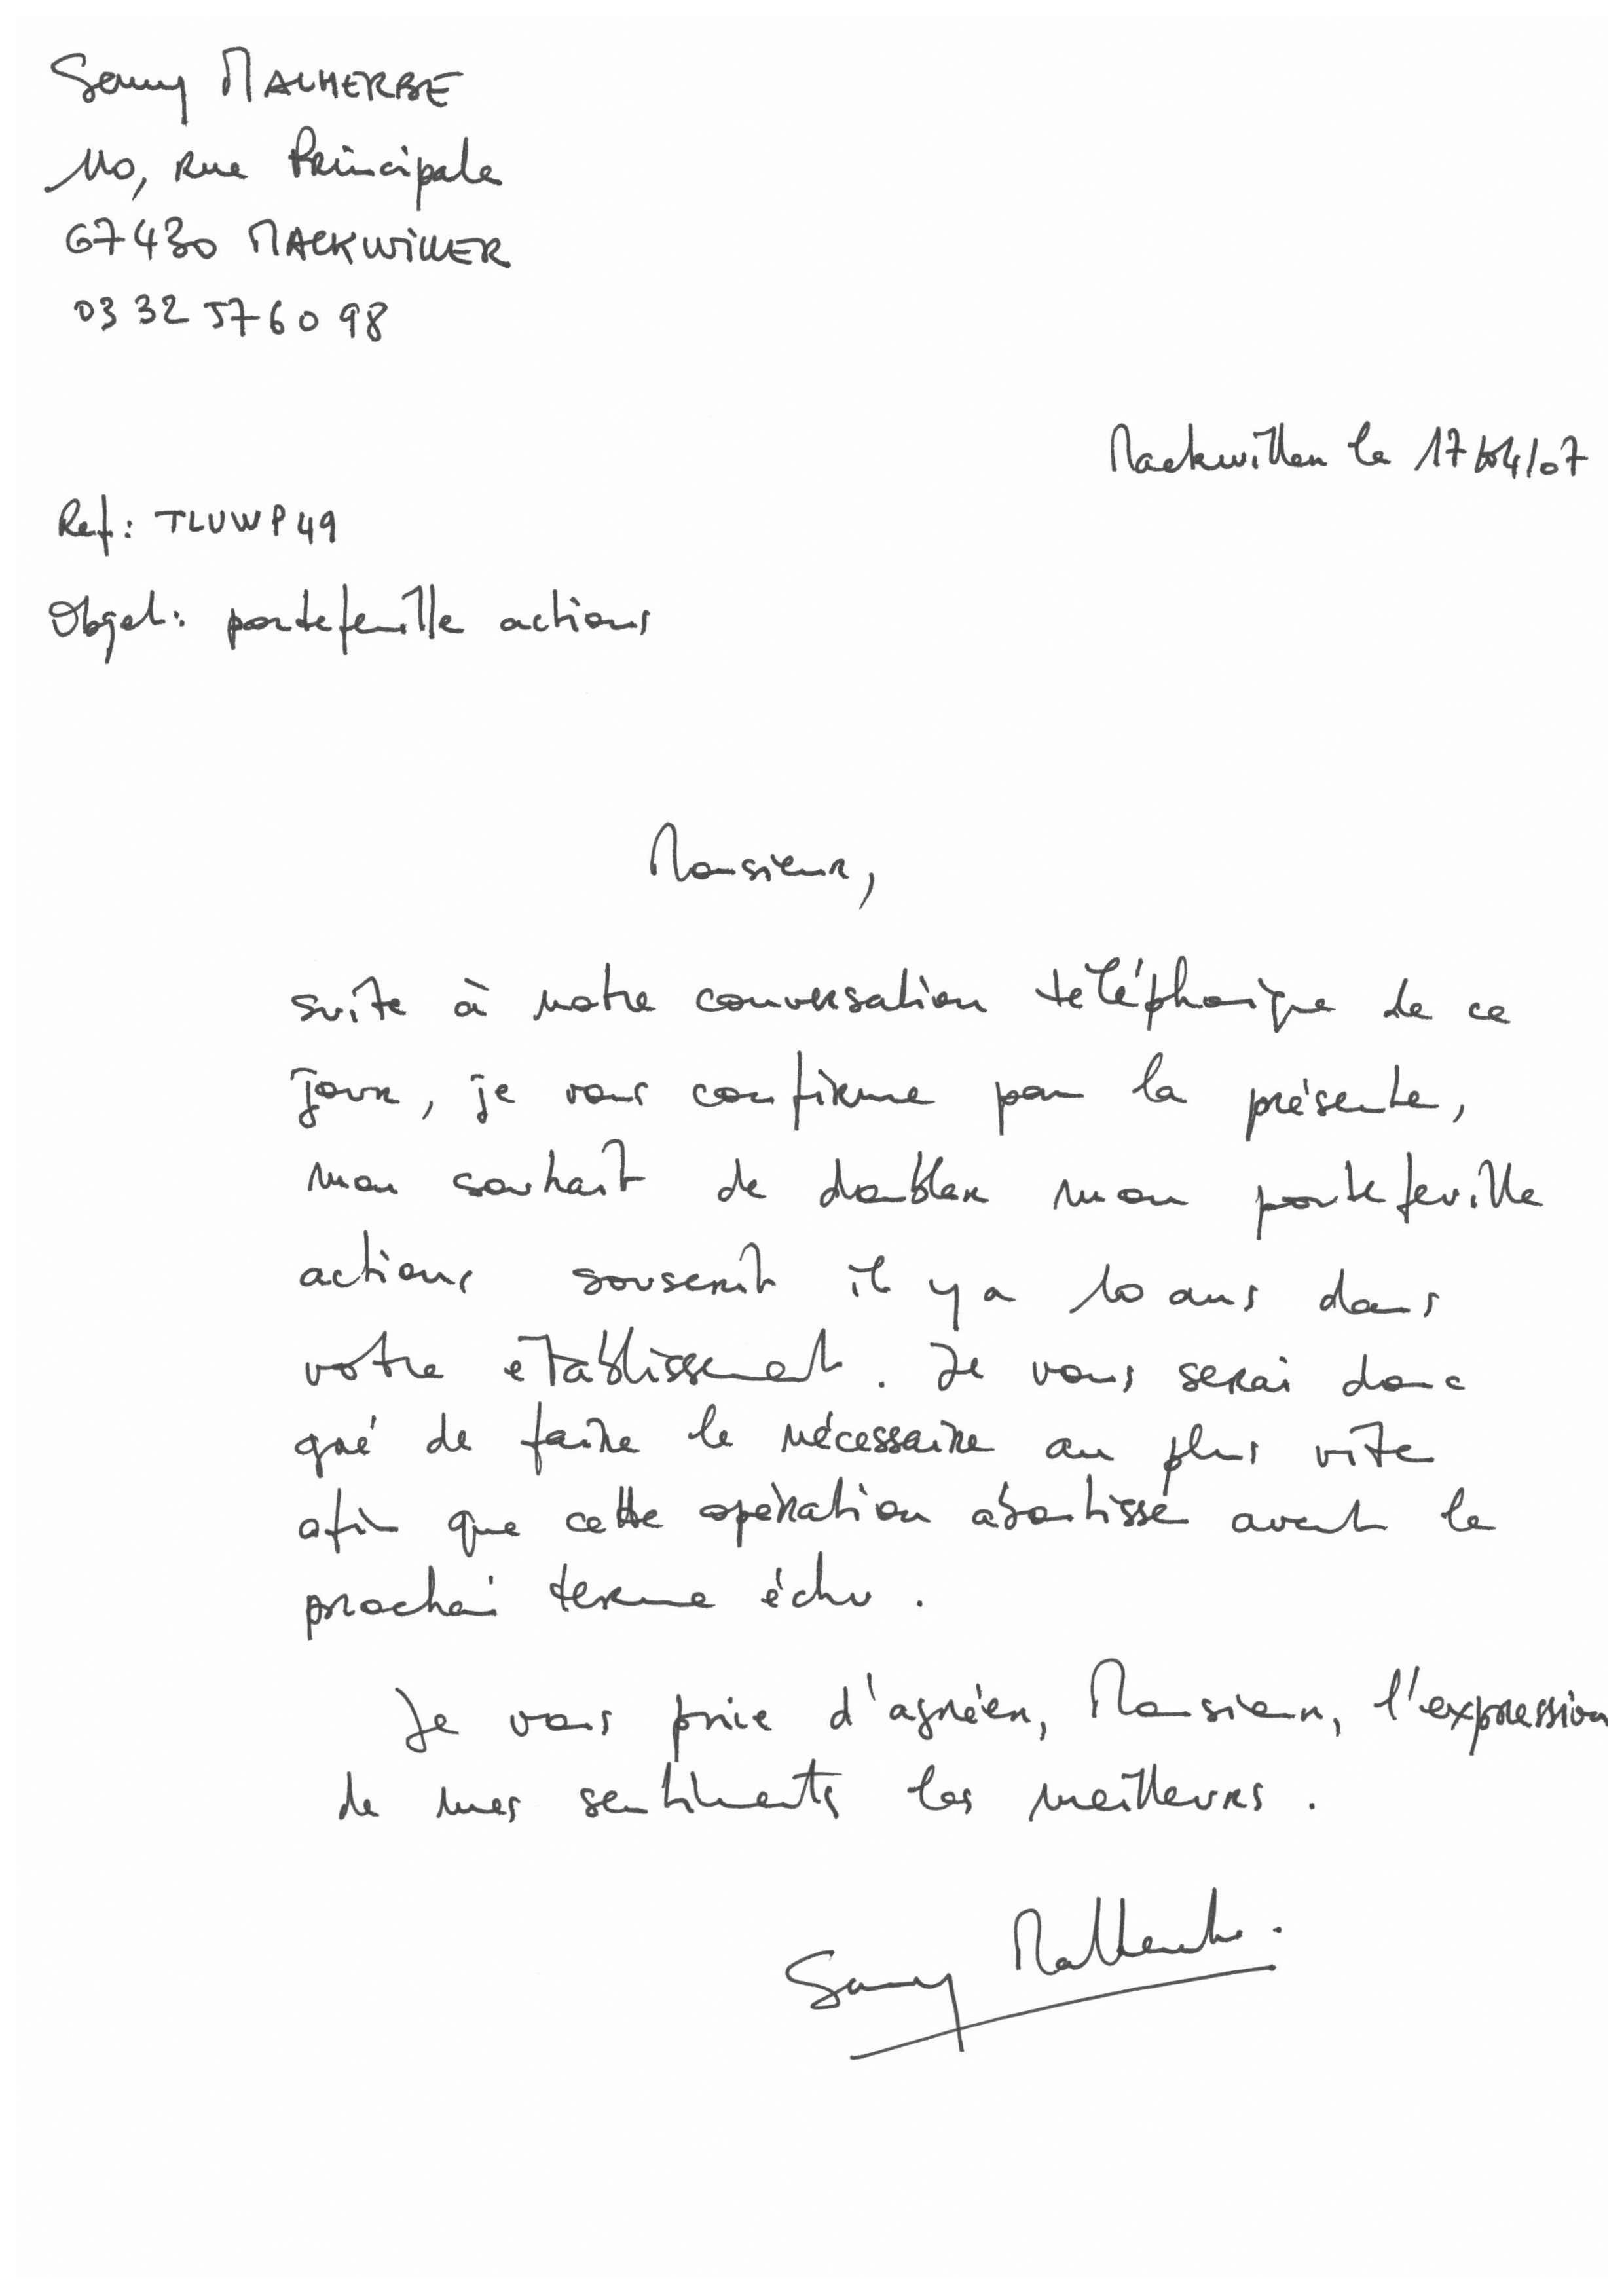 Samy MALHERBE
110, Rue Principale
67430 MACKWILLER
03 32 57 60 98
Mackwiller le 17/04/07
Ref: TLUWP49
Objet: portefeuille actions
Monsieur,
suite à notre conversation téléphonique de ce
jour, je vous confirme par la présente,
mon souhait de doubler mon portefeuille
actions souscrit il y a 10 ans dans
votre etablissement. Je vous serai donc
gré de faire le nécessaire au plus vite
afin que cette opération aboutisse avant le
prochai terme échu.
Je vous prie d'agréer, Monsieur, l'expression
de mes sentiments les meilleurs.
Samy Malherbe.